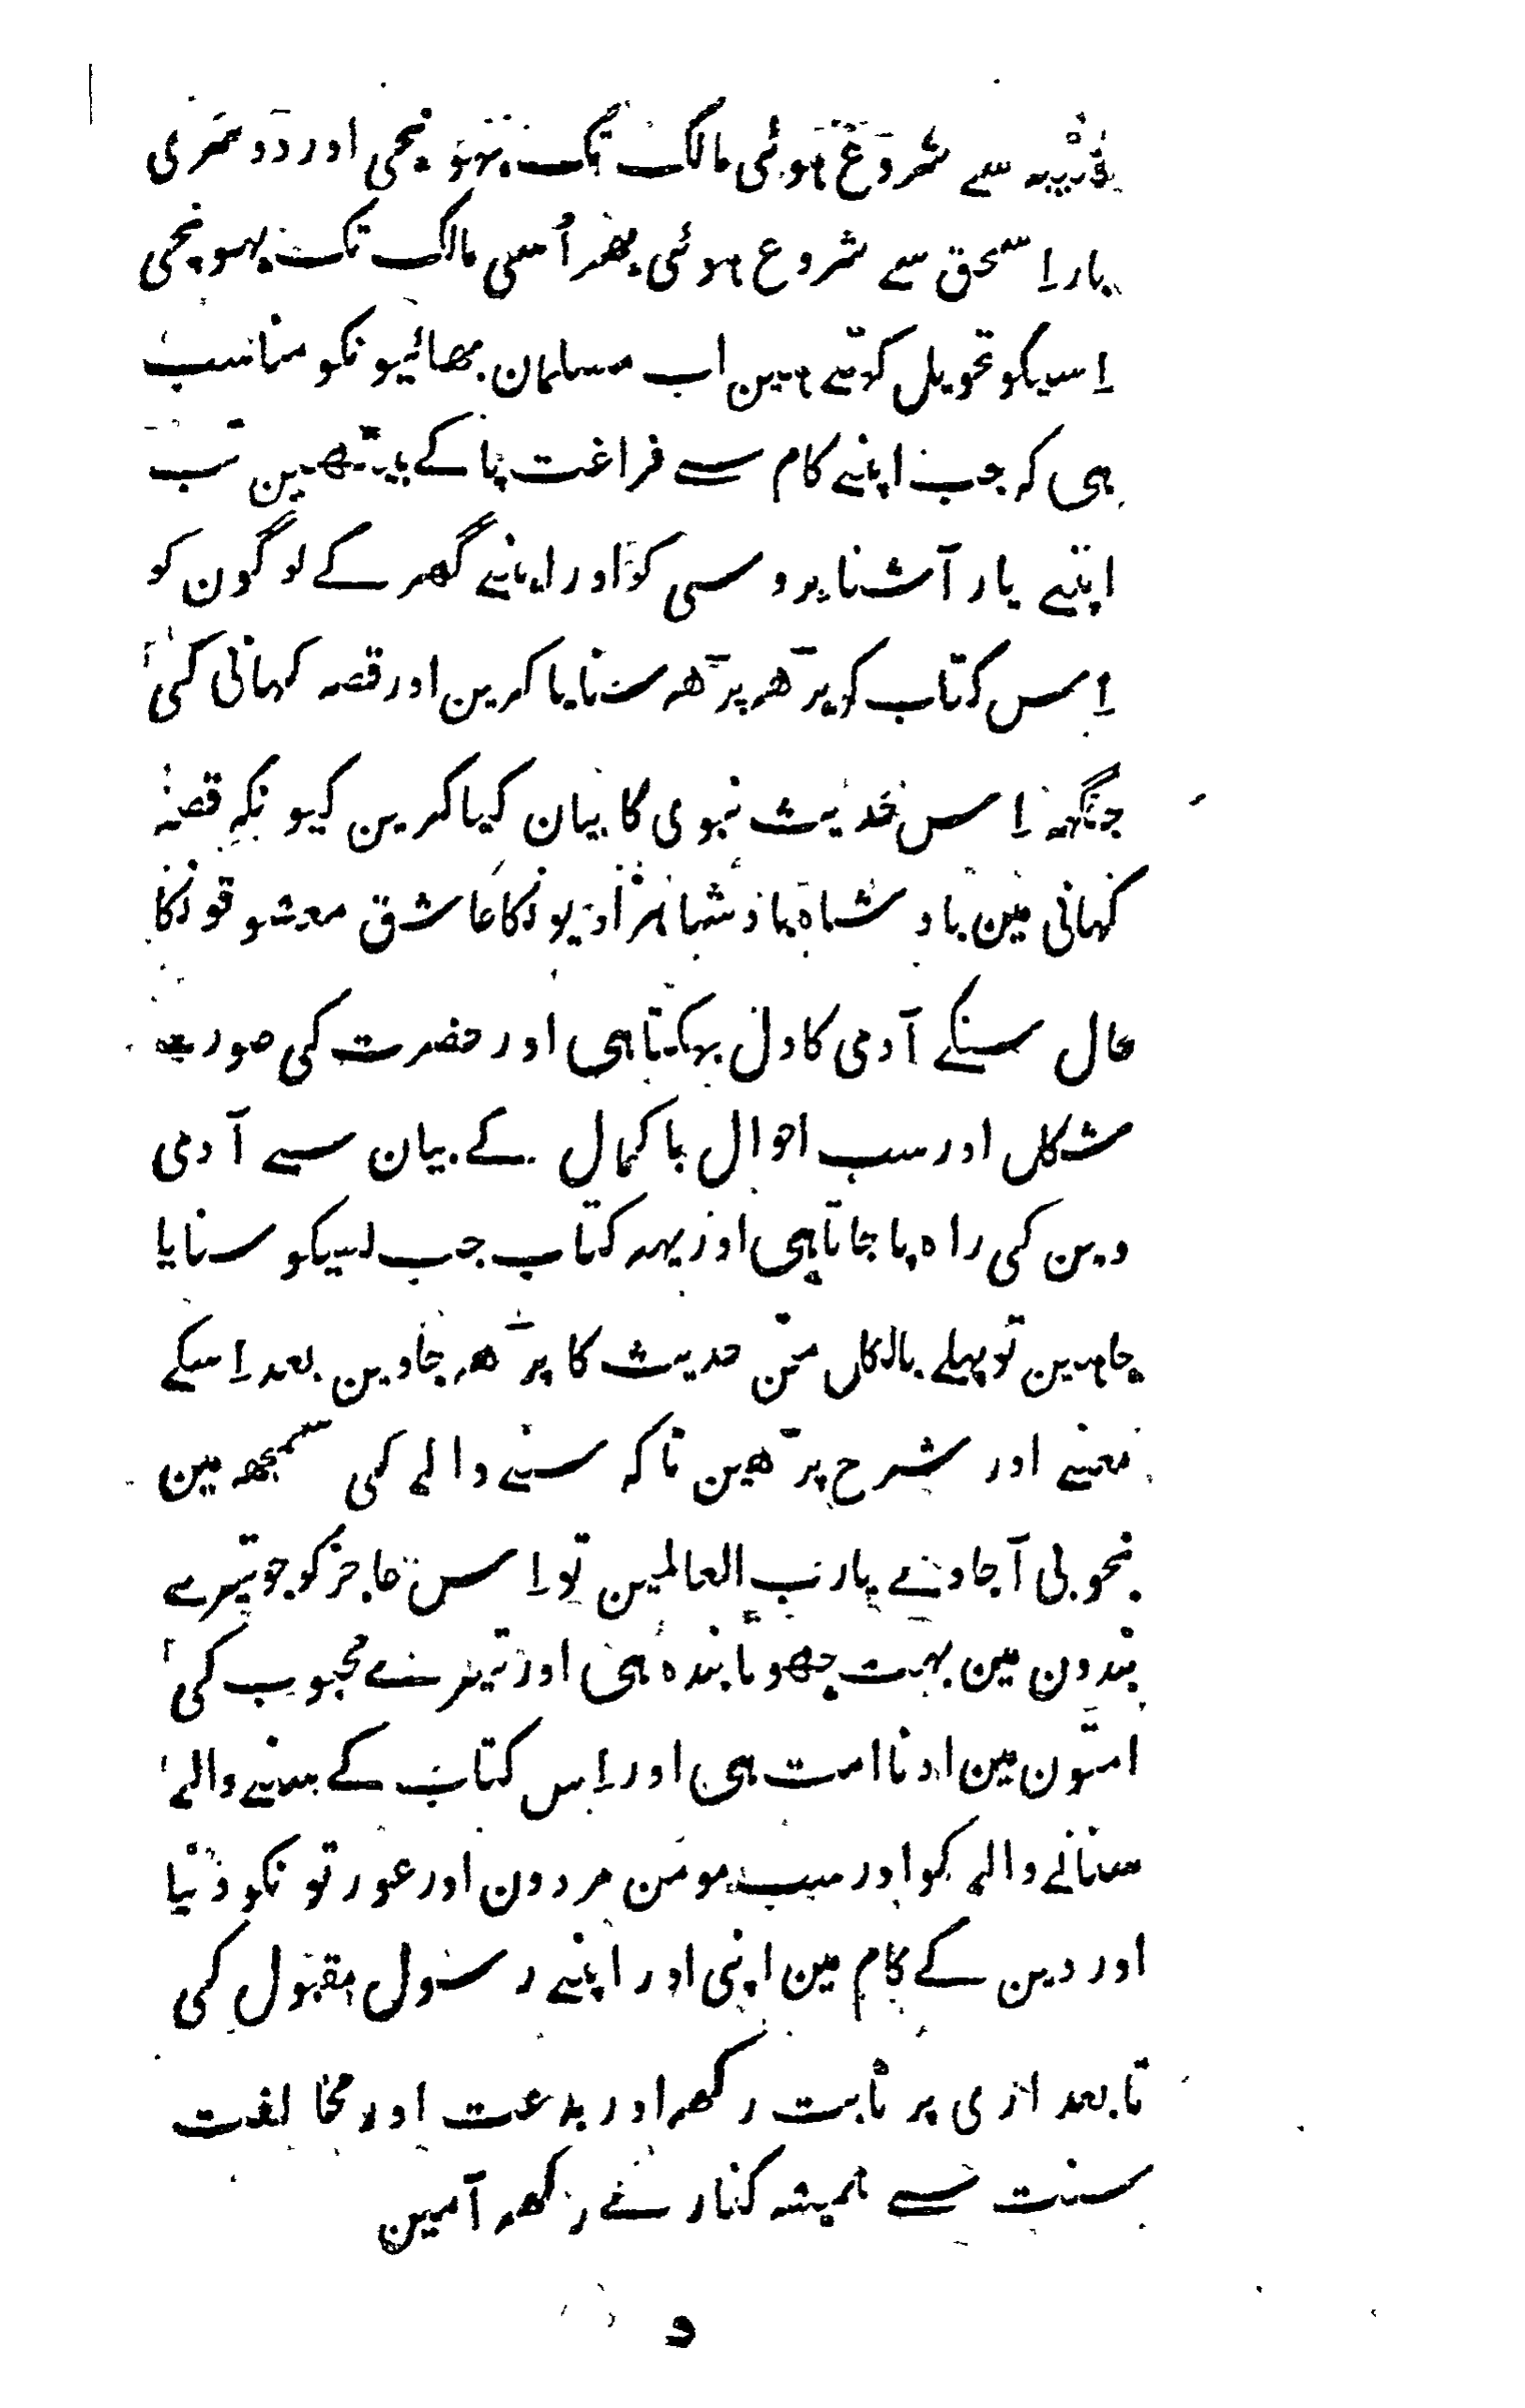 قتیبہ سے شروع ہوئی مالک تک پہونچی اور دوسری
بار اِسحق سے شروع ہوئی پھر اُسی مالک تک پہونچی
اِسیکو تحویل کہتے ہین اب مسلمان بھائیونکو مناسب
ہی کہ جب اپنے کام سے فراغت پا کے بیٹھین تب
اپنے یار آشنا پروسی کو اور اپنے گھر کے لوگون کو
اِس کتاب کو پڑھ پڑھ سنایا کرین اور قصہ کہانی کی
جگہہ اِس حدیث نبوی کا بیان کیا کرین کیونکہ قصہ
کہانی مین بادشاہ بادشاہزادیونکا عاشق معشوقونکا
حال سنکے آدمی کا دل بہکتا ہی اور حضرت کی صورت
شکل اور سب احوال باکمال کے بیان سے آدمی
دین کی راہ پا جاتا ہی اور یہہ کتاب جب کسیکو سنایا
چاہین تو پہلے بالکل متن حدیث کا پڑھ جاوین بعد اِسکے
معنے اور شرح پڑھین تاکہ سننے والے کی سمجھ مین
بخوبی آ جاوے یا رب العالمین تو اِس عاجز کو جو تیرے
بندون مین بہت چھوٹا بندہ ہی اور تیرے محبوب کی
امتون مین ادنا امت ہی اور اِس کتاب کے سننے والے
سنانے والے کو اور سب مومن مردون اور عورتونکو دنیا
اور دین کے کام مین اپنی اور اپنے رسول مقبول کی
تابعداری پر ثابت رکھہ اور بدعت اور مخالفت
سنت سے ہمیشہ کنارے رکھہ آمین
و